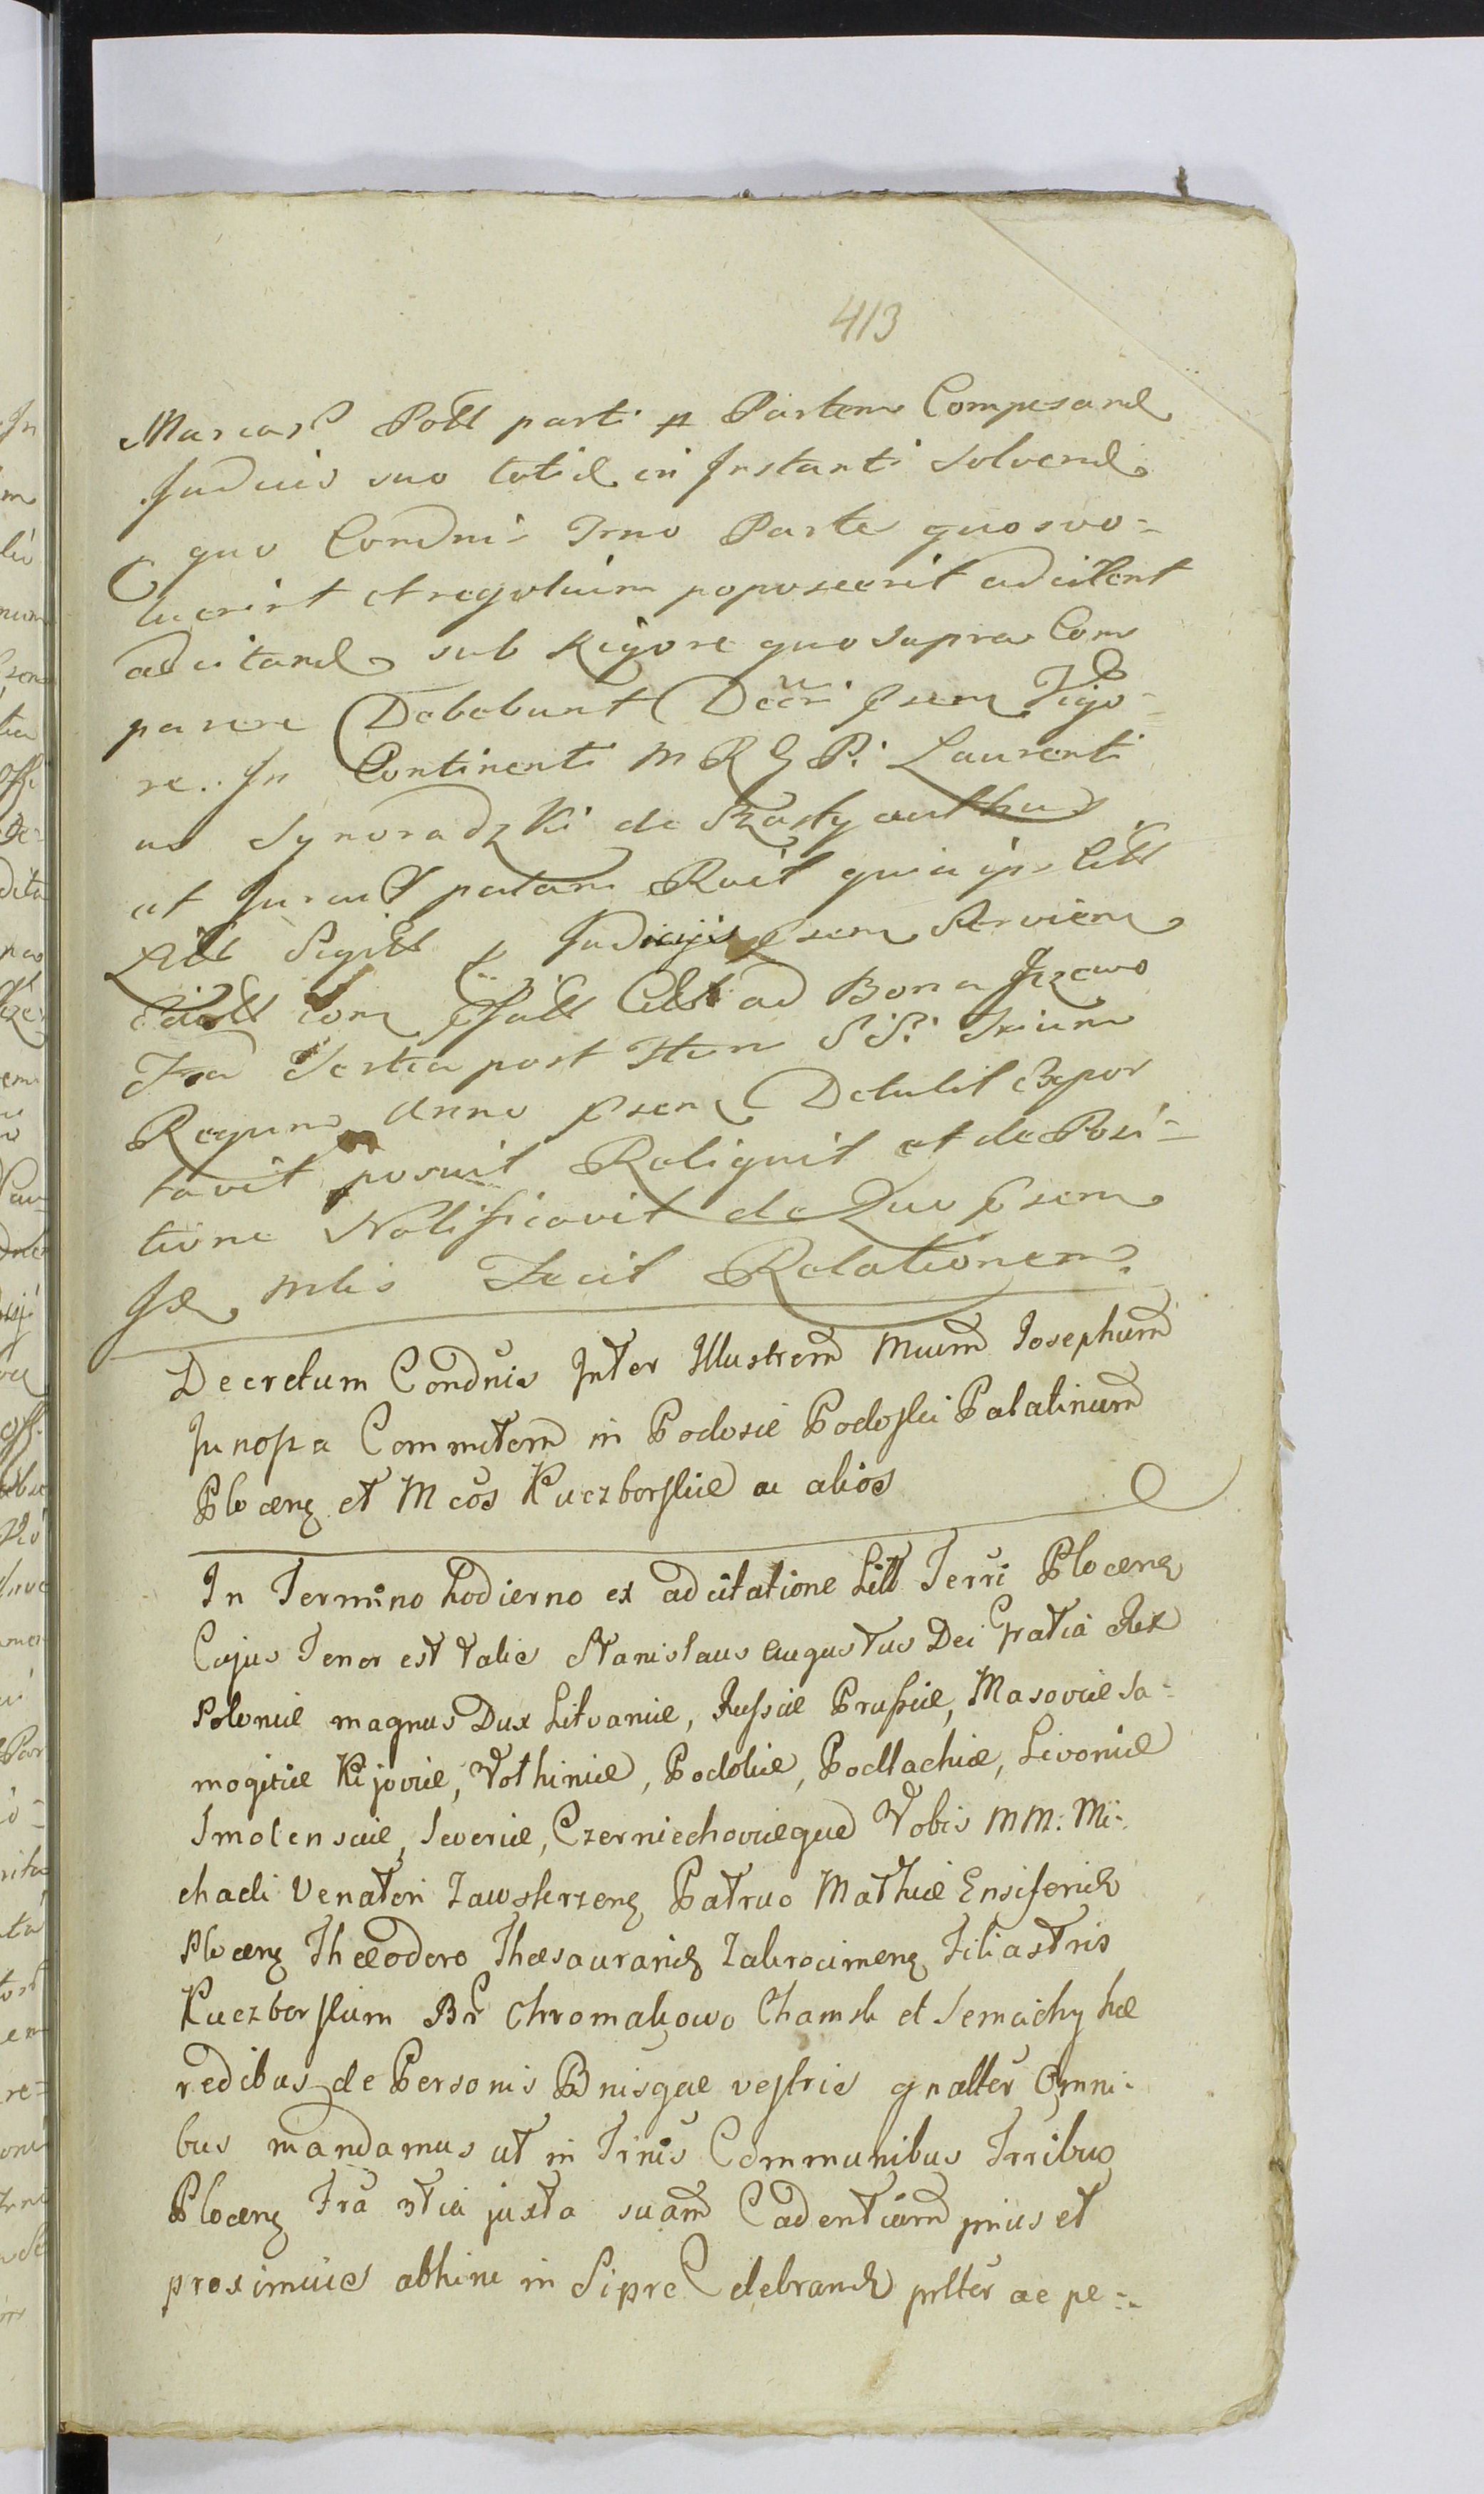 413
Marcas Poll parti p Partem Compesand
Judicio suo totid in Instanti solvend
quo Condnis Trno Partes quos vo-
luerint et regulum poposcerit adcitent
adcitand sub Rigore quo supra Com
parere Debebunt Decri psem Vigo-
re. In Continenti M R G P. Laurenti
us Synoradzki de Rzasty
at Juravit palam Rvit quia ips
Litt Sigill Judicijs psem Servien
ad Bona Jezewo
Fra Tertia post Ftem S S. Trium
Regum Anno psen Detulit Repor
tavit posuit Reliquit et de Posi-
tione Notificavit de Quo psem
Se mlis Fecit Relationem.
Decretum Condnis Inter Illustrem Mcum Josephum
Junosza Commitem in Podosie Podoski Palatinum
Plocens et Mcos Kuczborskie ac alios
In Termino hodierno ex adcitatione Litt Terri Plocens
Cujus Tenor est talis Stanislaus Augustus Dei Gratia Rex
Poloniæ magnus Dux Litvaniæ, Russiæ Prussiæ, Masoviæ Sa-
mogitiæ Kijoviæ, Volhiniæ, Podoliæ, Podlachiæ, Livoniæ
Smolensciæ, Severiæ, Czerniechoviæque Vobis MM: Mi-
chaeli Venatori Zawskrzens Patruo Mathiæ Ensiferid
Plocens Theodoro Thesaurarid Zakrocimens Filiastris
Kuczborskim Br Chromakowo Chamsk et Semichy hæ
redibus de Personis Bnisque vestris gnalter Omni-
bus mandamus ut in Trnis Communibus Trribus
Plocens Fra 3tia juxta suam Cadentiam prius et
proximius abhinc in Sipre Celebrand prlter ac pe-